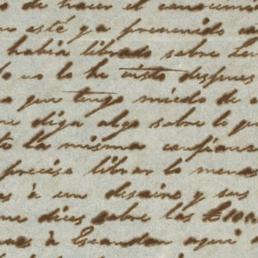 de hacer el conocimi
no esté ya prevenido
habia librado sobre
no lo he visto despues
que tengo miedo de
me diga algo sobre lo que
la misma confianza
preciso librar lo menos
à un desaire y sus
me dices sobre las
à Escandon aqui